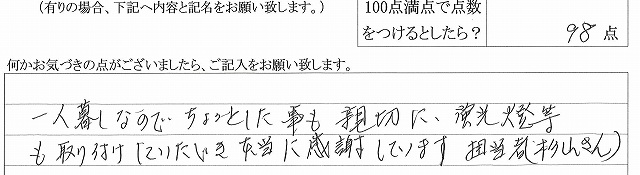 (有りの場合、下記へ内容と記名をお願い致します。)
100点満点で点数
をつけるとしたら?
98 点
何かお気づきの点がございましたら、ご記入をお願い致します。
一人暮しなので ちょっとした事も 親切に、蛍光燈等
も取り付けしていただき 本当に感謝しています 担当者(杉山さん)